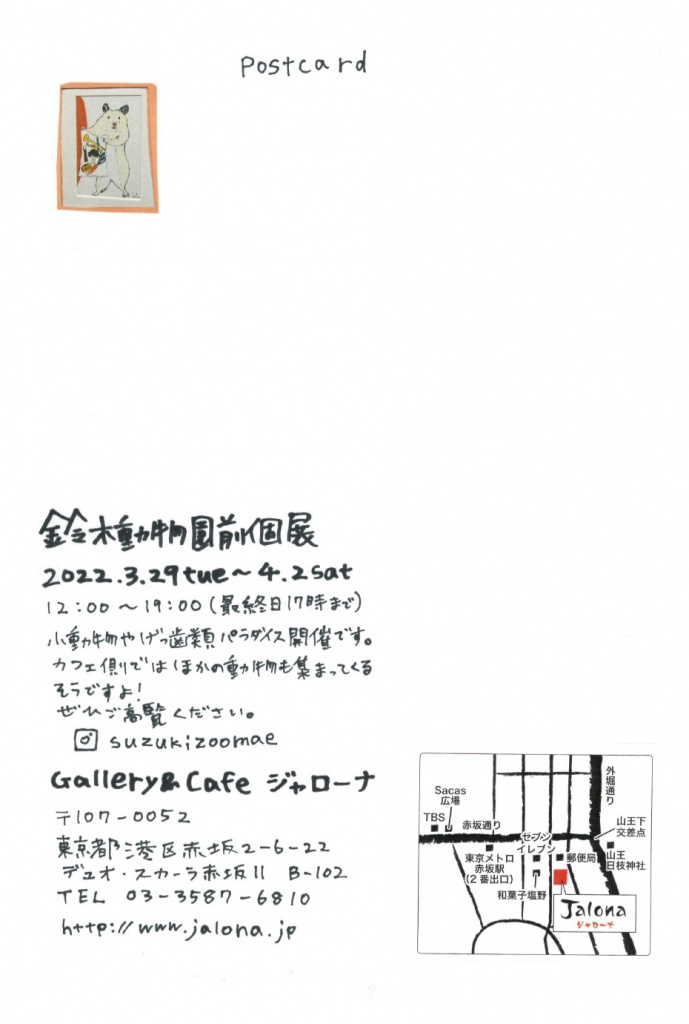 Postcard
鈴木動物園前個展
2022.3.29tue〜4.2sat
12:00〜19:00(最終日17時まで)
小動物やげっ歯類パラダイス開催です。
カフェ側ではほかの動物も集まってくる
そうですよ!
ぜひご高覧ください。
suzukizoomae
Gallery&Cafe ジャローナ
〒107-0052
東京都港区赤坂2-6-22
デュオ・スカーラ赤坂II B-102
TEL 03-3587-6810
http://www.jalona.jp
外堀通り
Sacas
広場
TBS
赤坂通り
山王下
交差点
セブン
イレブン
東京メトロ
赤坂駅
(2番出口)
郵便局
山王
日枝神社
和菓子塩野
Jalona
ジャローナ